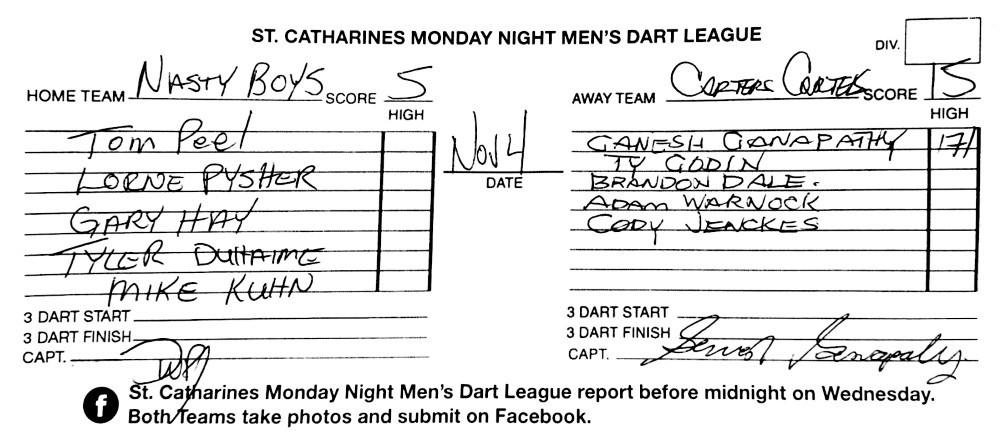 ST. CATHARINES MONDAY NIGHT MEN'S DART LEAGUE
DIV.
HOME TEAM NASTY BOYS SCORE 5
AWAY TEAM CARTERS CARTEL SCORE 15
HIGH
HIGH
Nov 4
DATE
Tom Peel
LORNE PYSHER
GARY HAY
TYLER DUHAIME
MIKE KUHN
GANESH GANAPATHY 171
TY GODIN
BRANDON DALE.
ADAM WARNOCK
CODY JENCKES
3 DART START
3 DART FINISH
CAPT.
3 DART START
3 DART FINISH
CAPT. Ganesh Ganapathy
f St. Catharines Monday Night Men's Dart League report before midnight on Wednesday.
Both Teams take photos and submit on Facebook.